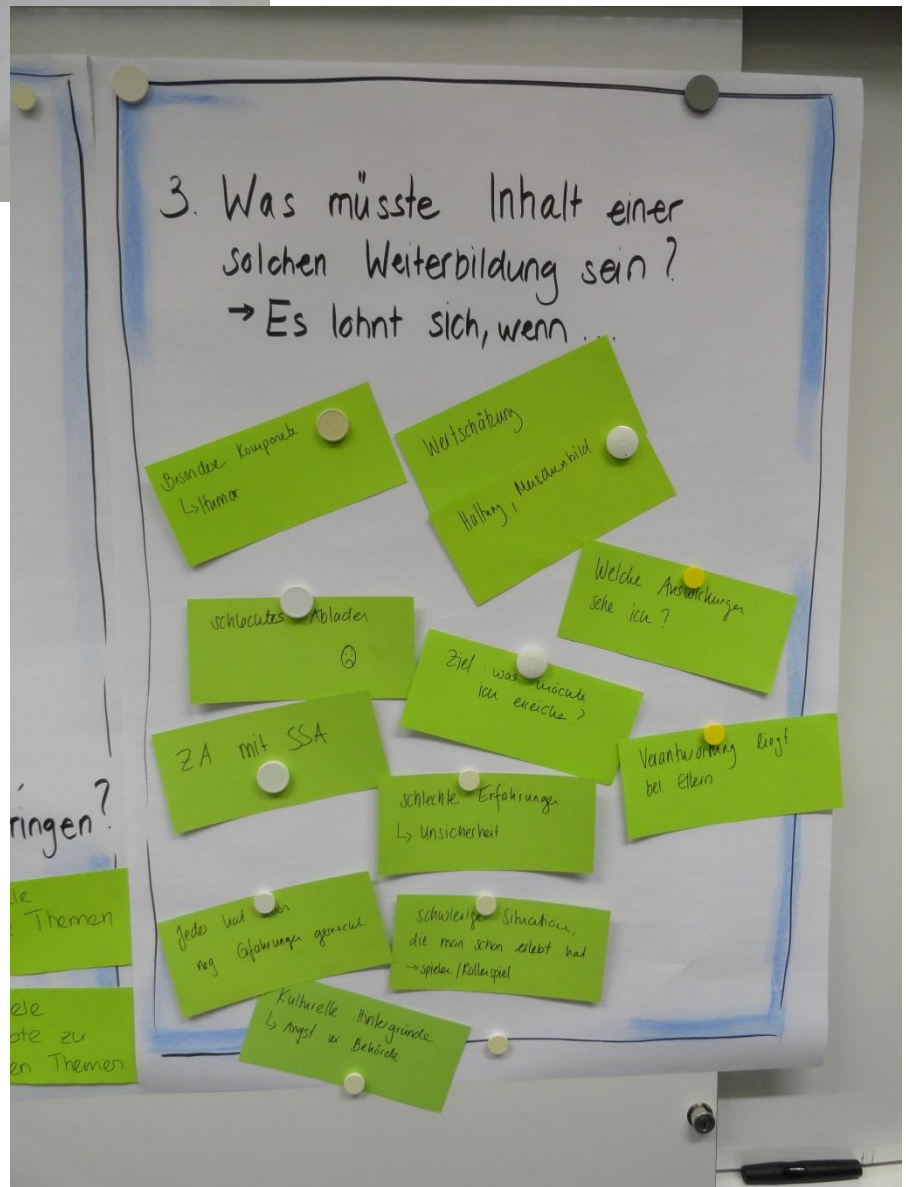 3. Was müsste Inhalt einer
solchen Weiterbildung sein?
→ Es lohnt sich, wenn ...
Besondere Komponete
↳ Humor
Wertschätzung
Haltung, Menschenbild
Welche Auswirkungen
sehe ich?
schlechtes Abladen
Ziel was möchte
ich erreiche?
ZA mit SSA
Verantwortung liegt
bei Eltern
schlechte Erfahrungen
↳ Unsicherheit
Jeder hat
neg. Erfahrungen gemacht
schwierige Situation,
die man schon erlebt hat
→ spielen / Rollenspiel
Kulturelle Hintergründe
↳ Angst vor Behörde
ringen?
Themen
ele
ote zu
en Themen